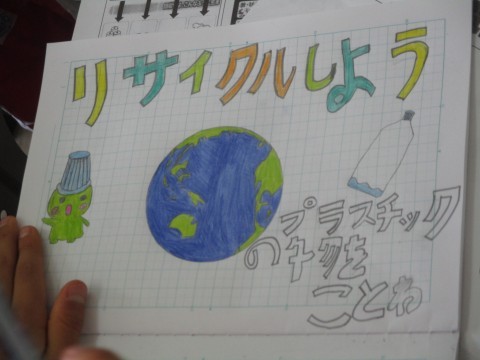 リサイクルしよう
プラスチック
の物を
ことわ